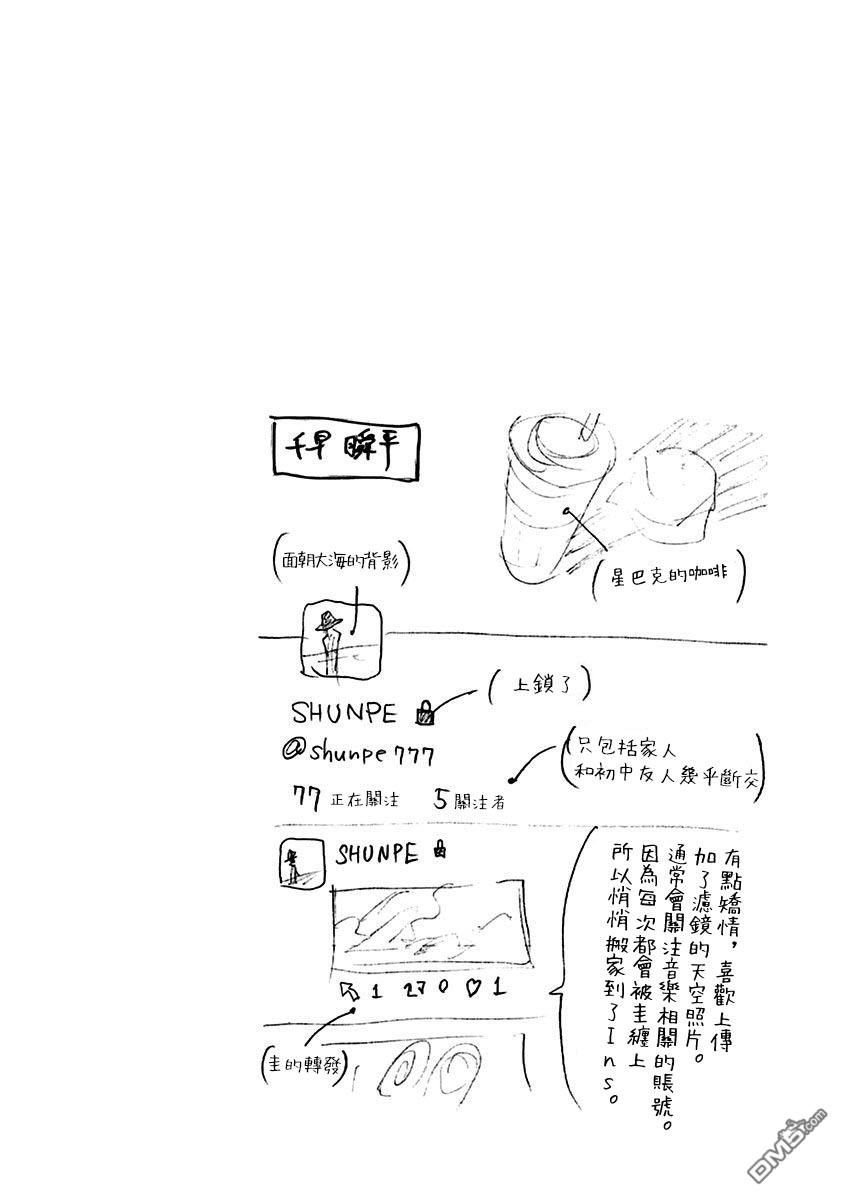 千早 瞬平
(面朝大海的背影)
(星巴克的咖啡)
SHUNPE
(上鎖了)
@shunpe777
(只包括家人
和初中友人幾乎斷交)
77 正在關注 5 關注者
SHUNPE
1 27 0 ♡ 1
(圭的轉發)
有點矯情,喜歡上傳
加了濾鏡的天空照片。
通常會關注音樂相關的賬號。
因為每次都會被圭纏上
所以悄悄搬家到了Ins。
DM5.com